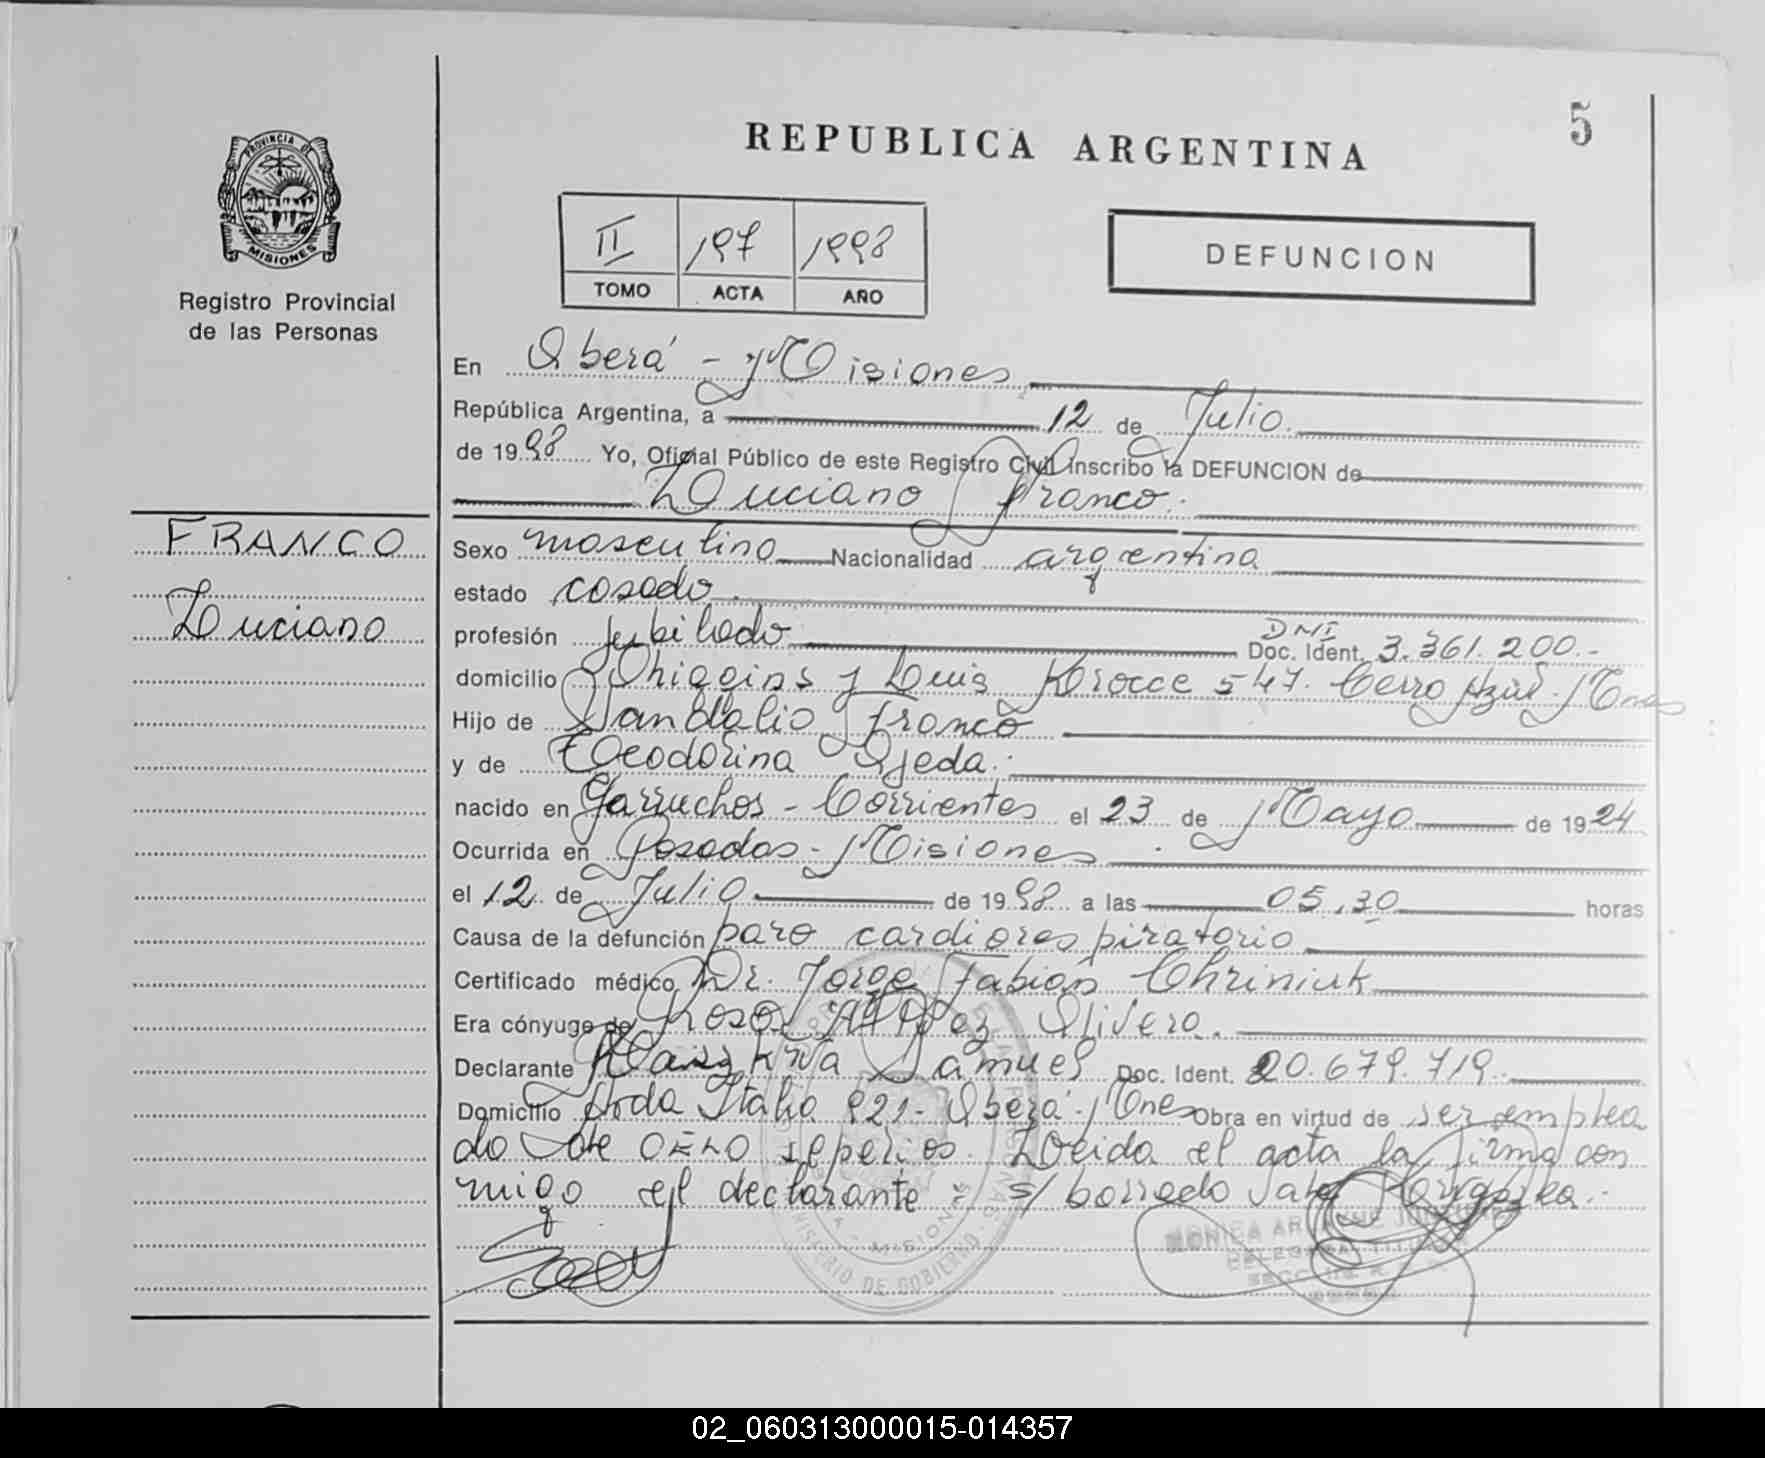 5
REPUBLICA ARGENTINA
PROVINCIA DE
MISIONES
Registro Provincial
de las Personas
II 197 1998
TOMO ACTA AÑO
DEFUNCION
En Oberá - Misiones
República Argentina, a 12 de Julio
de 1998 Yo, Oficial Público de este Registro Civil inscribo la DEFUNCION de
Luciano Franco.
FRANCO
Luciano
Sexo masculino Nacionalidad argentina
estado casado.
profesión jubilado DNI Doc. Ident. 3.361.200.-
domicilio Ohiggins y Luis 547. Cerro Azul. Mnes
Hijo de Sandalio Franco
y de Teodorina Ojeda.
nacido en Garruchos - Corrientes el 23 de Mayo de 1924
Ocurrida en Posadas - Misiones
el 12 de Julio de 1998 a las 05,30 horas
Causa de la defunción paro cardiorespiratorio
Certificado médico Dr. Jorge Fabian Chriniuk
Era cónyuge de Rosa Olivera.
Declarante Samuel Doc. Ident. 20.679.719
Domicilio Avda Italia 921 - Oberá - Mnes Obra en virtud de ser emplea
do de sepelios. Leida el acta la firma con
migo el declarante s/ borrado vale
MINISTERIO DE GOBIERNO
MISIONES
02_060313000015-014357